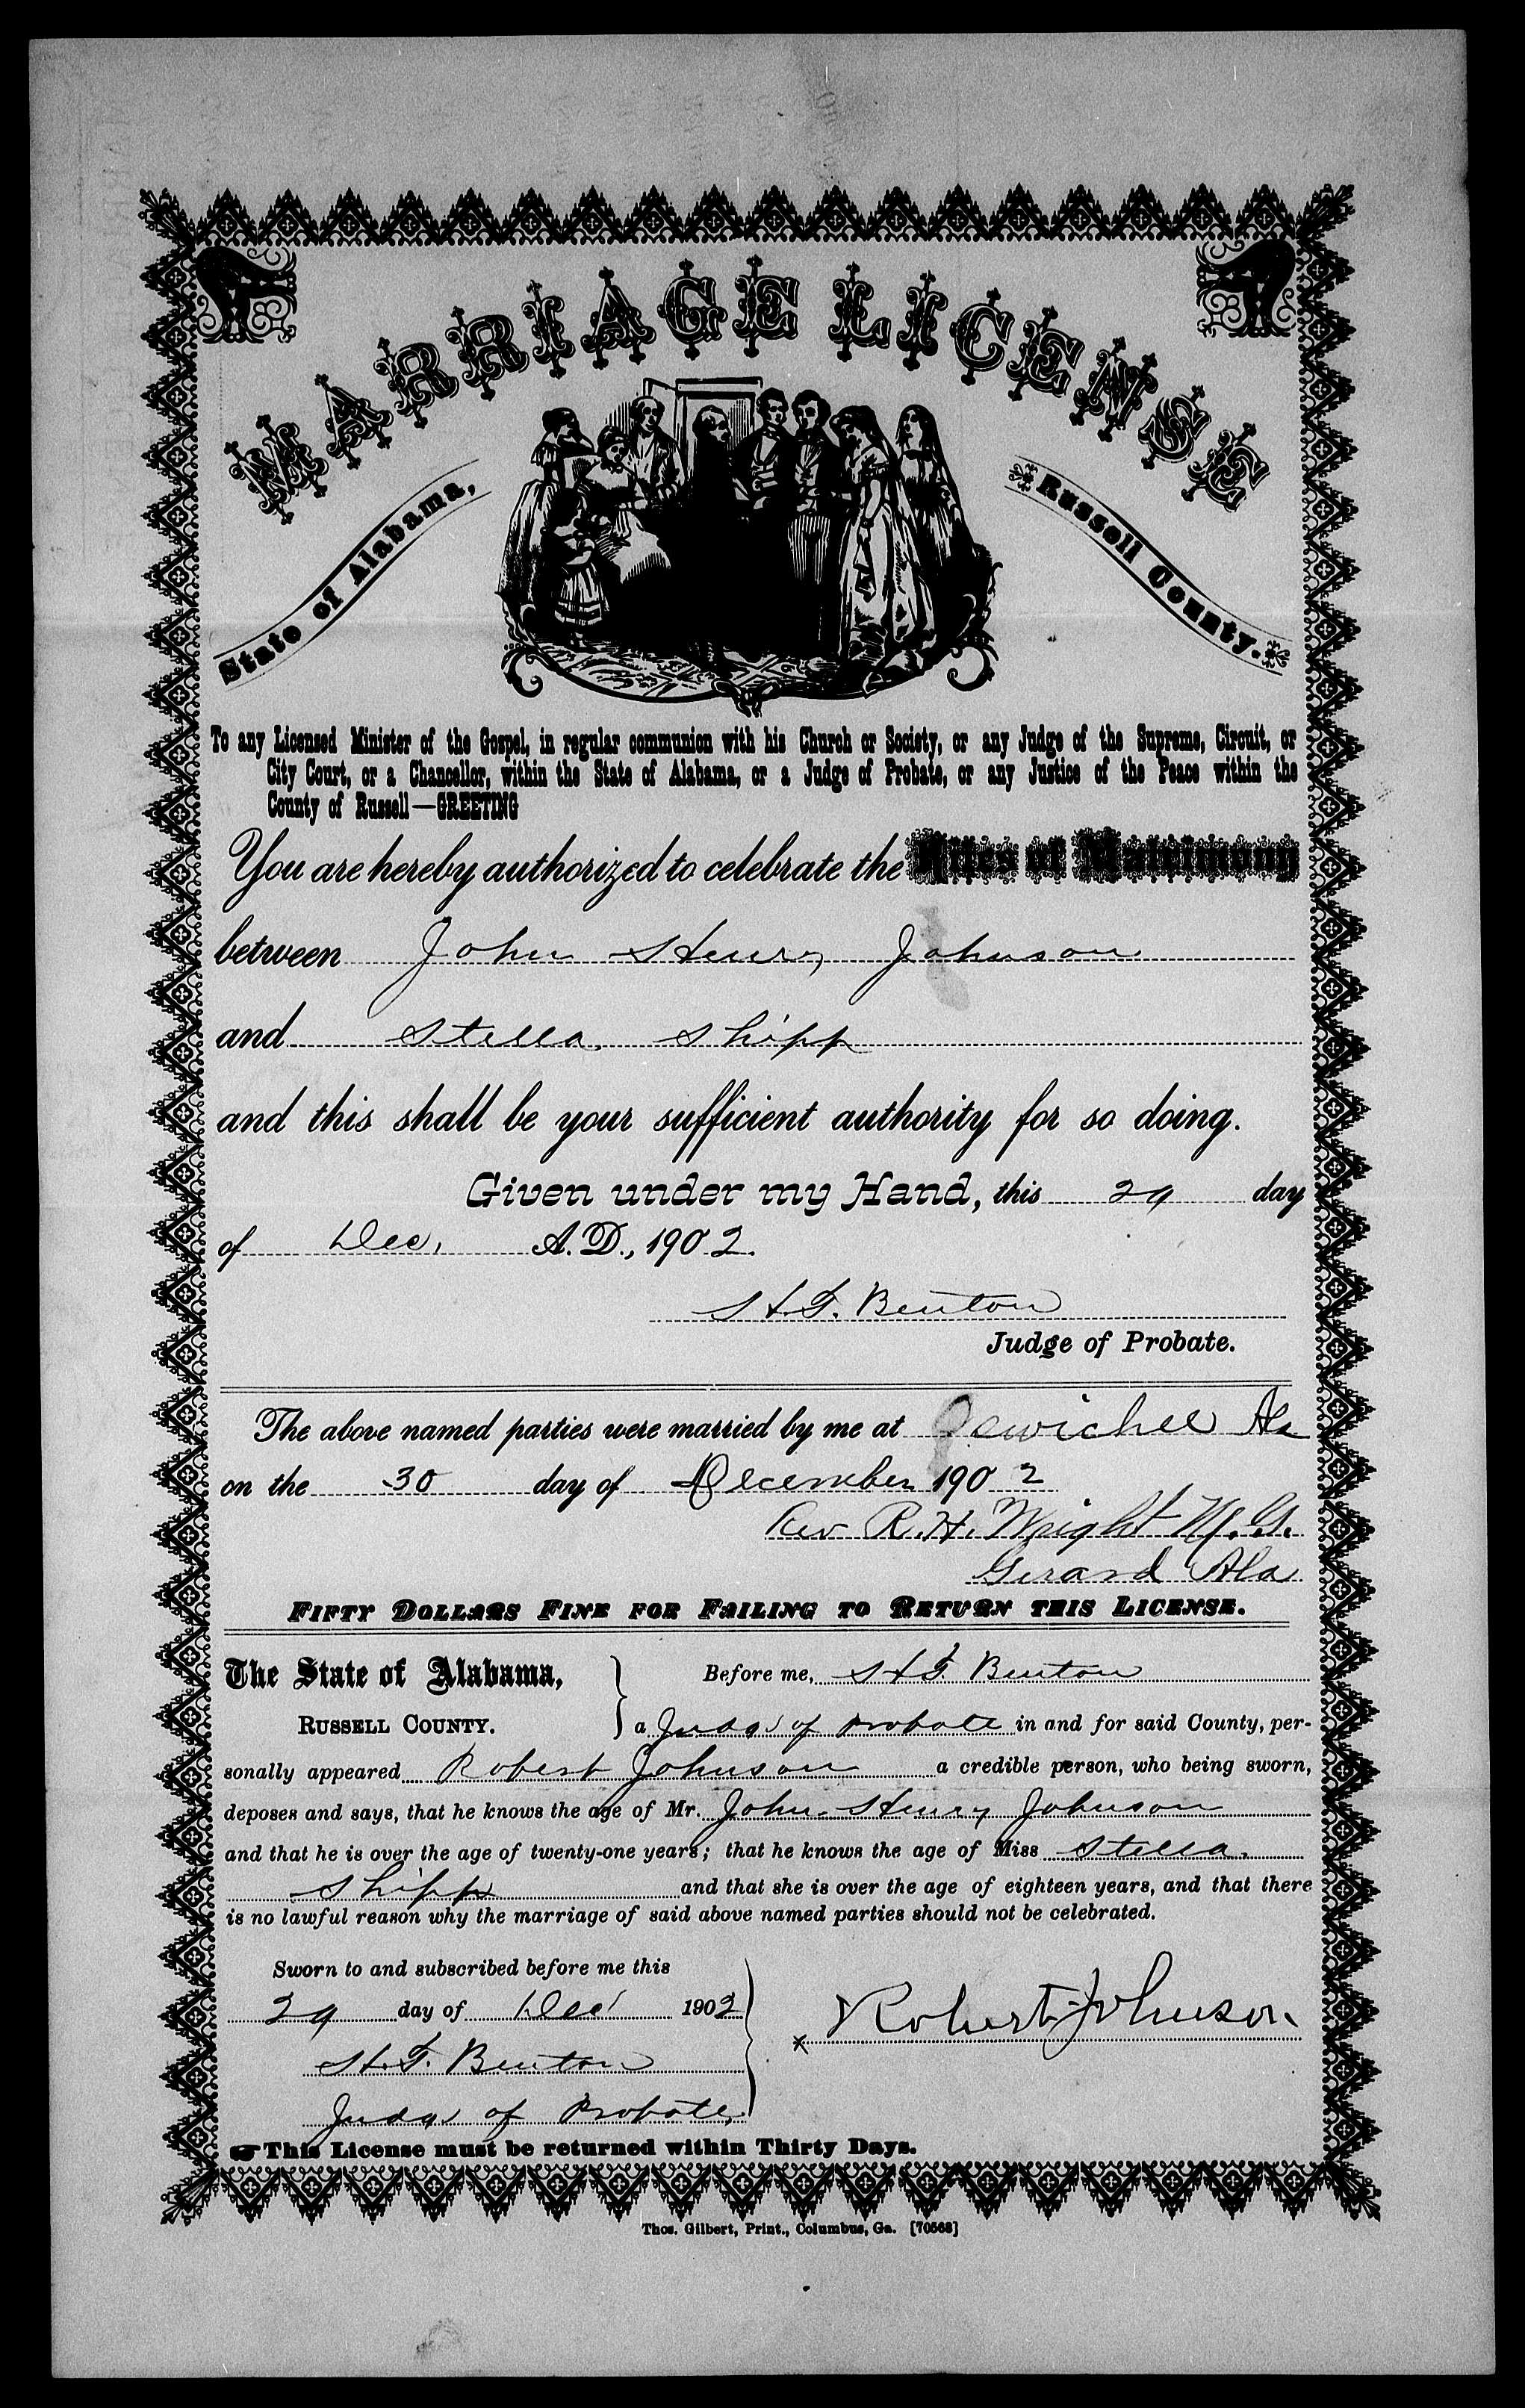 MARRIAGE LICENSE
State of Alabama, Russell County.
To any Licensed Minister of the Gospel, in regular communion with his Church or Society, or any Judge of the Supreme, Circuit, or
City Court, or a Chancellor, within the State of Alabama, or a Judge of Probate, or any Justice of the Peace within the
County of Russell—GREETING
You are hereby authorized to celebrate the Rites of Matrimony
between John Henry Johnson
and Stella Shipp
and this shall be your sufficient authority for so doing.
Given under my Hand, this 29 day
of Dec. A.D., 1902.
H.T. Benton
Judge of Probate.
The above named parties were married by me at Ala
on the 30 day of December 1902
Rev R.H. Wright M.G.
Girard Ala
FIFTY DOLLARS FINE FOR FAILING TO RETURN THIS LICENSE.
The State of Alabama, Before me, H.T. Benton
RUSSELL COUNTY. a Judge of Probate in and for said County, per-
sonally appeared Robert Johnson a credible person, who being sworn,
deposes and says, that he knows the age of Mr. John Henry Johnson
and that he is over the age of twenty-one years; that he knows the age of Miss Stella
Shipp and that she is over the age of eighteen years, and that there
is no lawful reason why the marriage of said above named parties should not be celebrated.
Sworn to and subscribed before me this
29 day of Dec 1902
x Robert Johnson
H.T. Benton
Judge of Probate
☛This License must be returned within Thirty Days.
Thos. Gilbert, Print., Columbus, Ga. [70568]